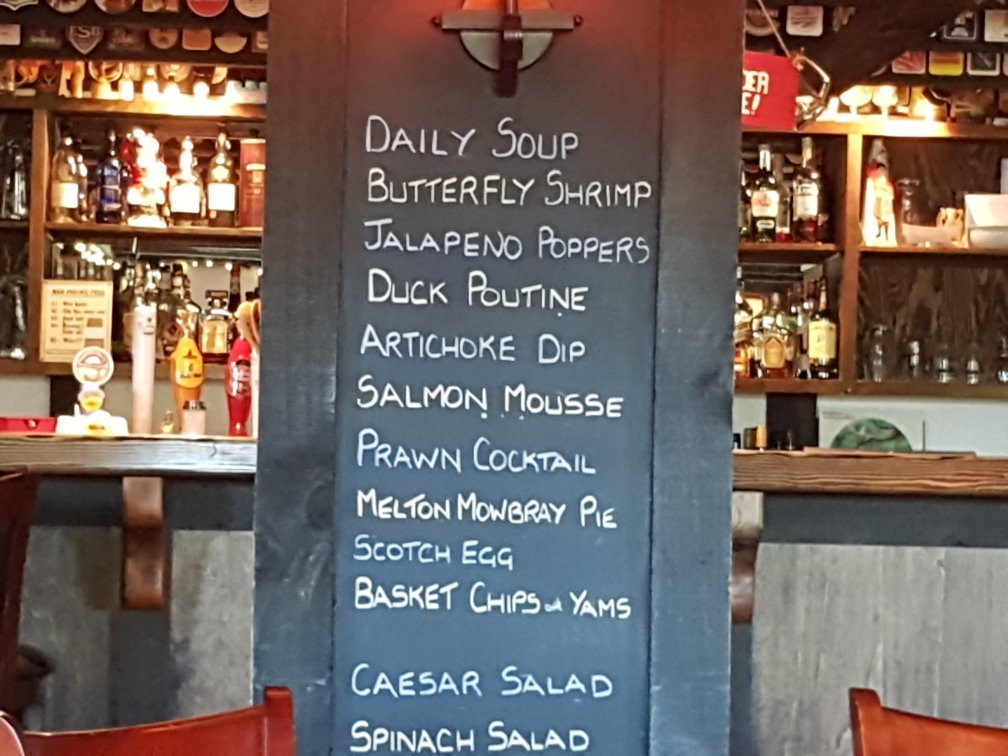 DAILY SOUP
BUTTERFLY SHRIMP
JALAPENO POPPERS
DUCK POUTINE
ARTICHOKE DIP
SALMON MOUSSE
PRAWN COCKTAIL
MELTON MOWBRAY PIE
SCOTCH EGG
BASKET CHIPS or YAMS
CAESAR SALAD
SPINACH SALAD